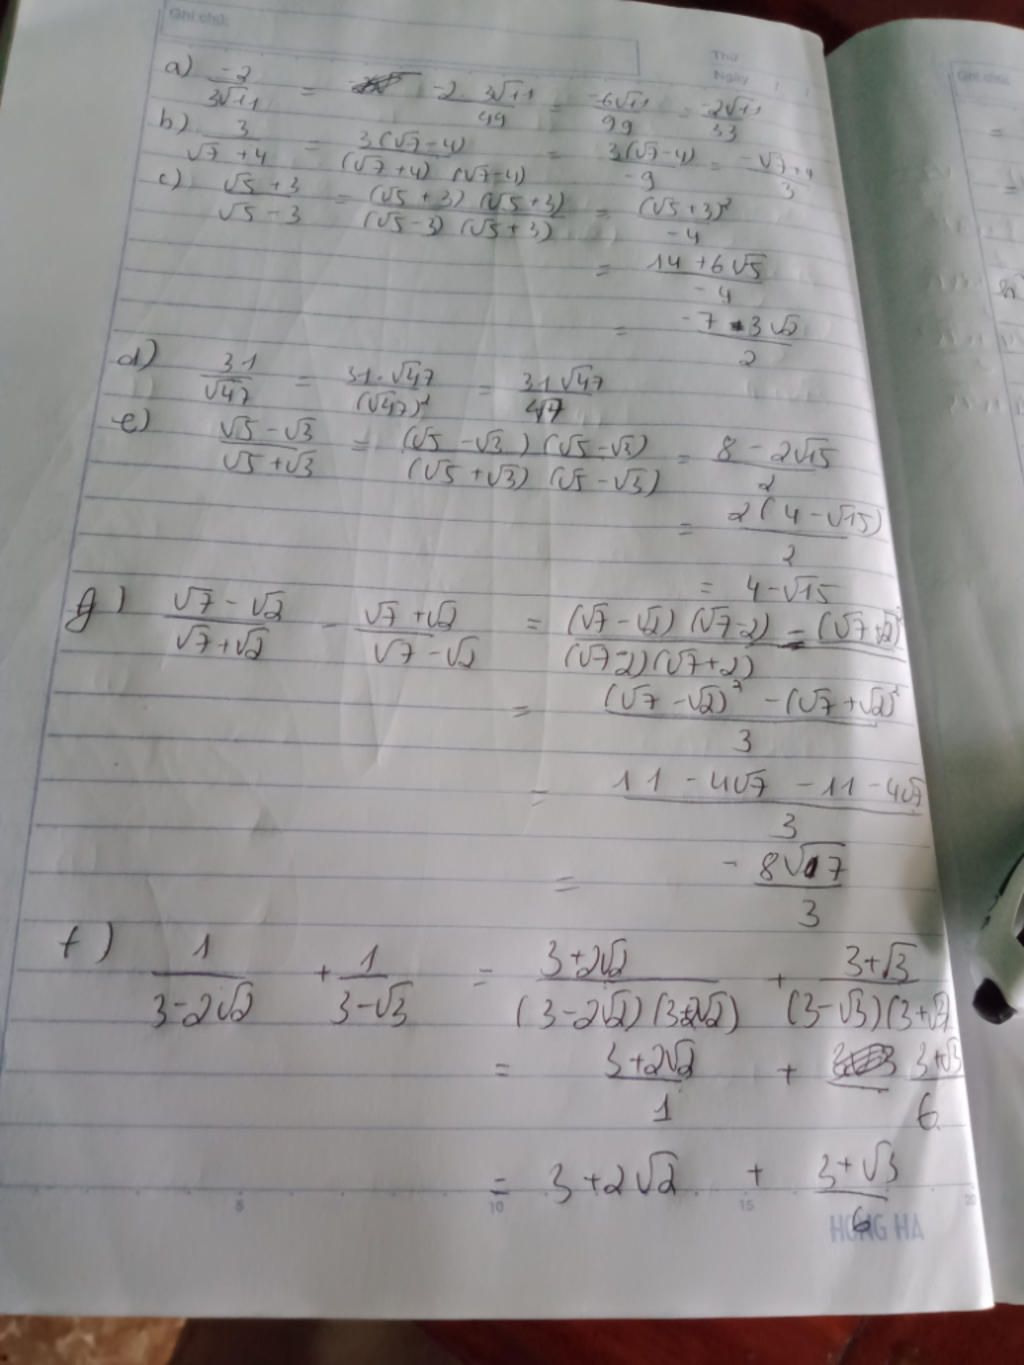 Ghi chú:
Thứ
Ngày
Ghi chú:
a) -2/(3√11) = -2 . 3√11/99 = -6√11/99 = -2√11/33
b) 3/(√7 + 4) = 3(√7 - 4)/((√7 + 4)(√7 - 4)) = 3(√7 - 4)/-9 = (-√7 + 4)/3
c) (√5 + 3)/(√5 - 3) = (√5 + 3)(√5 + 3)/((√5 - 3)(√5 + 3)) = (√5 + 3)²/-4
= (14 + 6√5)/-4
= (-7 - 3√2)/2
d) 31/√47 = 31.√47/(√47)² = 31√47/47
e) (√5 - √3)/(√5 + √3) = (√5 - √3)(√5 - √3)/((√5 + √3)(√5 - √3)) = (8 - 2√15)/2
= 2(4 - √15)/2
= 4 - √15
g) (√7 - √2)/(√7 + √2) - (√7 + √2)/(√7 - √2) = ((√7 - √2)(√7 - 2) - (√7 + √2)²)/((√7 - 2)(√7 + 2))
= ((√7 - √2)² - (√7 + √2)²)/3
= (11 - 4√7 - 11 - 4√7)/3
= -8√7/3
f) 1/(3 - 2√2) + 1/(3 - √3) = (3 + 2√2)/((3 - 2√2)(3 + 2√2)) + (3 + √3)/((3 - √3)(3 + √3)
= (3 + 2√2)/1 + (3 + √3)/6
= 3 + 2√2 + (3 + √3)/6
5 10 15 20
HONG HA